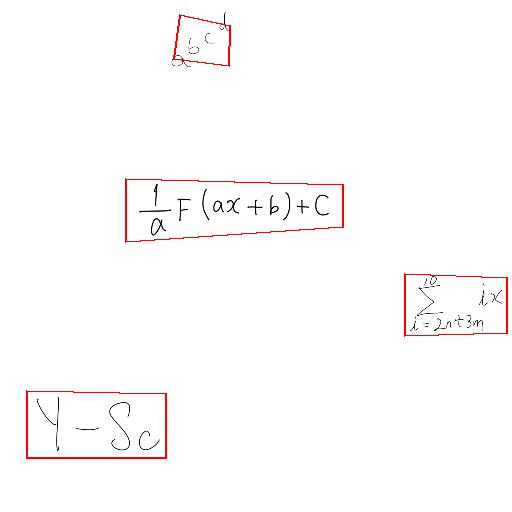 a^{b^{c^{d}}}
\frac{1}{a}F(ax+b)+C
\sum_{i=2n+3m}^{10} ix
Y-S_c